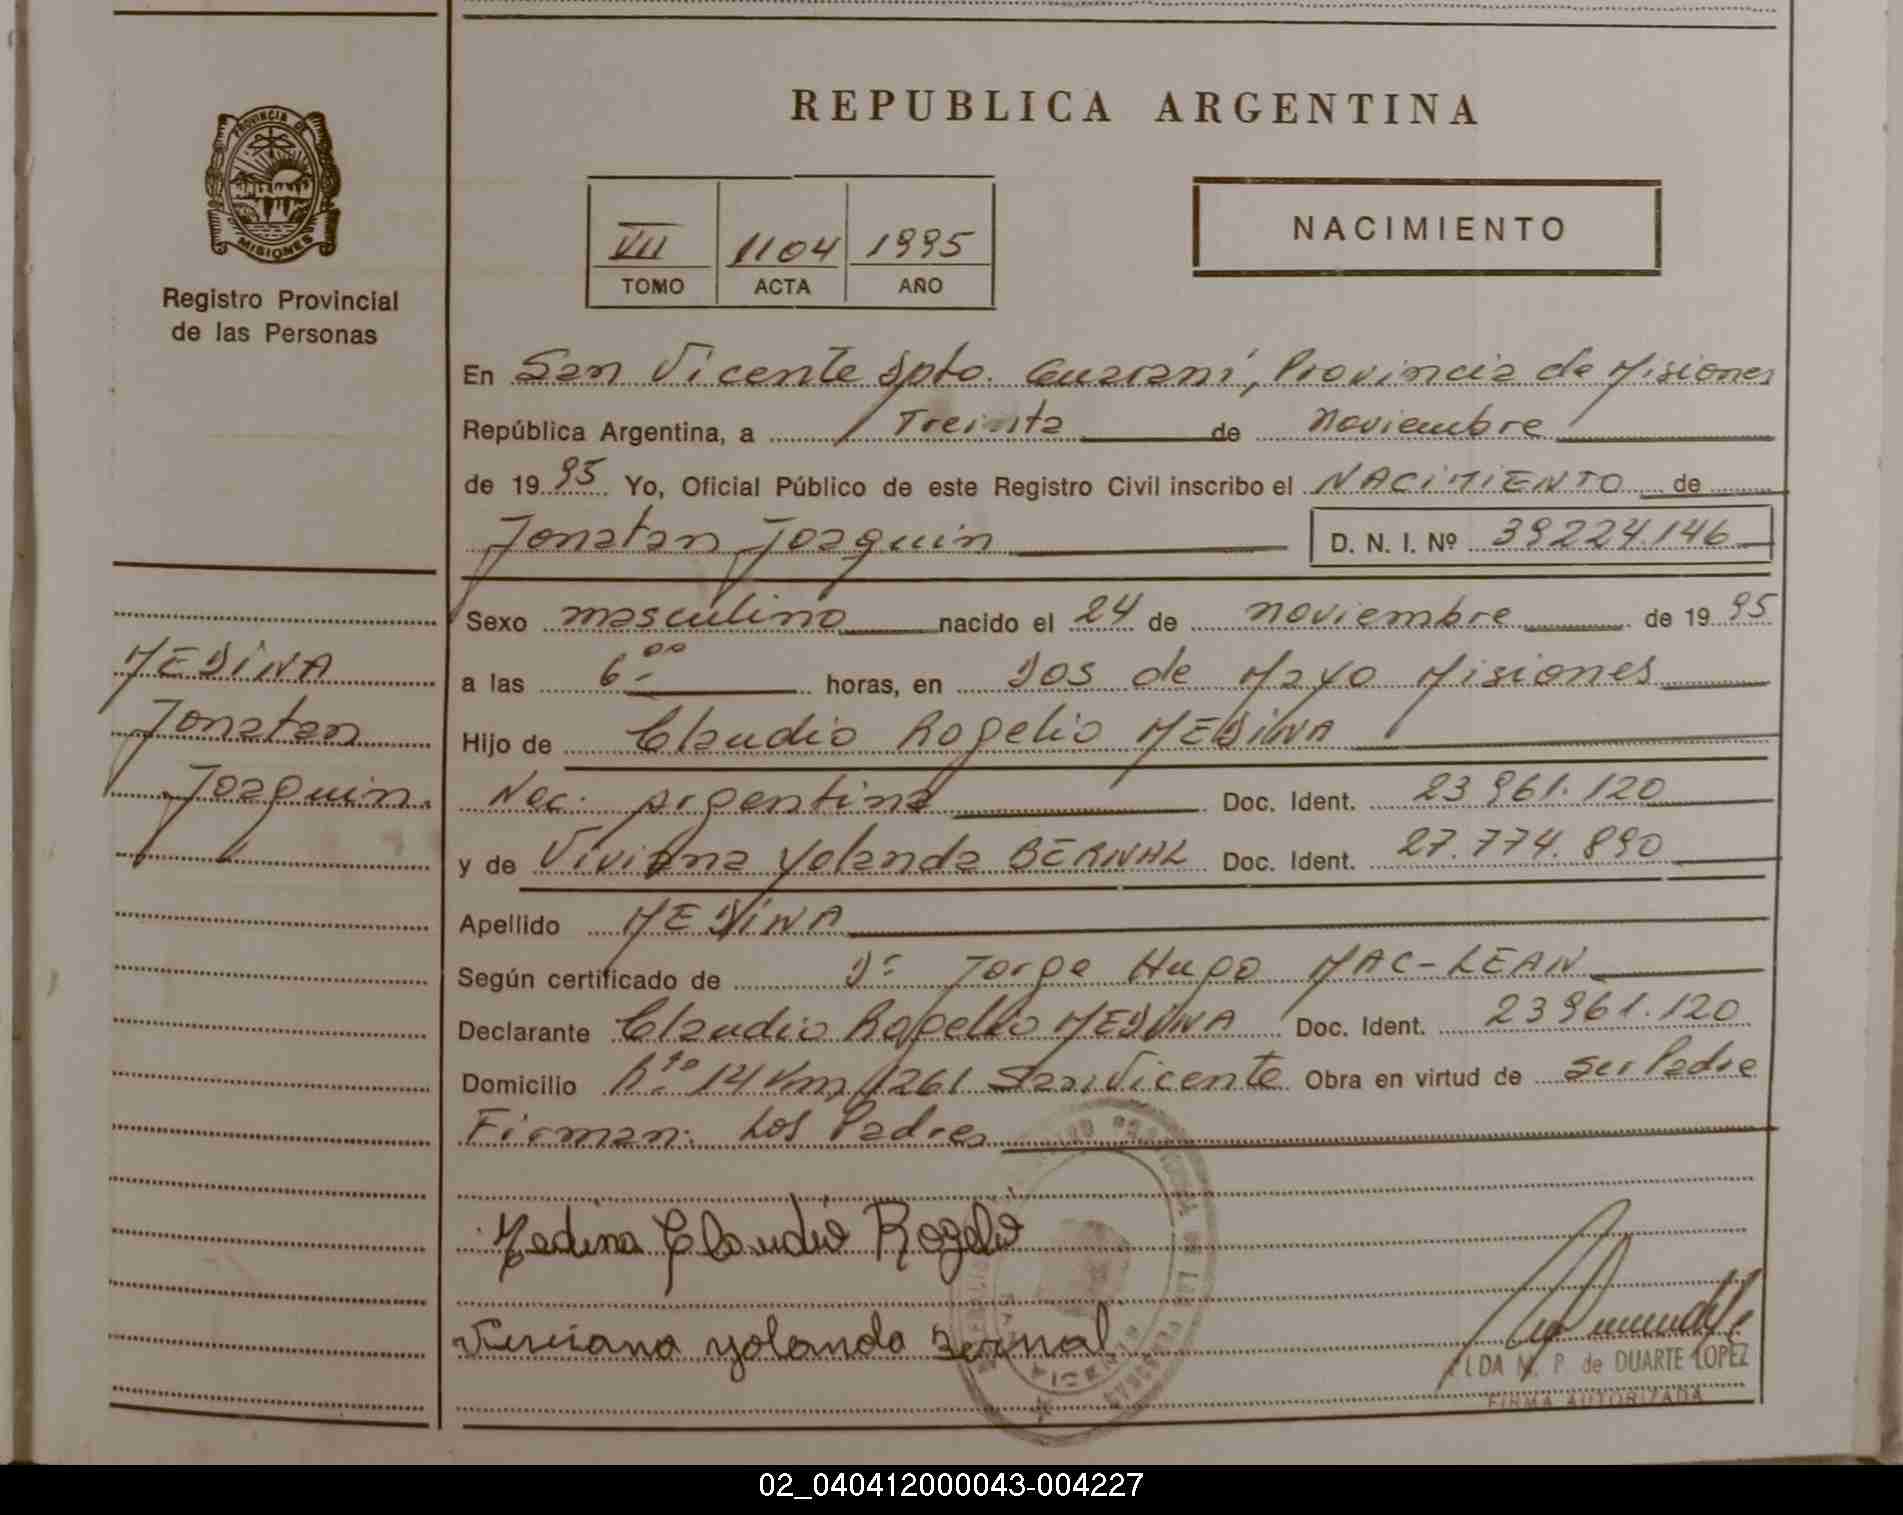 REPUBLICA ARGENTINA
PROVINCIA DE
MISIONES
Registro Provincial
de las Personas
VII 1104 1995
TOMO ACTA AÑO
NACIMIENTO
En San Vicente Dpto. Guaraní, Provincia de Misiones
República Argentina, a Treinta de Noviembre
de 1995 Yo, Oficial Público de este Registro Civil inscribo el NACIMIENTO de
Jonatan Joaquin D. N. I. Nº 39224.146
Sexo masculino nacido el 24 de noviembre de 1995
a las 6.00 horas, en Dos de Mayo Misiones
Hijo de Claudio Rogelio MEDINA
Nac. Argentina Doc. Ident. 23961.120
y de Viviana Yolanda BERNAL Doc. Ident. 27.774.890
Apellido MEDINA
Según certificado de Dr. Jorge Hugo MAC-LEAN
Declarante Claudio Rogelio MEDINA Doc. Ident. 23961.120
Domicilio 14 Km 1261 San Vicente Obra en virtud de su Padre
Firman: Los Padres
MEDINA
Jonatan
Joaquin
Medina Claudio Rogelio
Viviana yolanda Bernal
M. P. de DUARTE LOPEZ
FIRMA AUTORIZADA
02_040412000043-004227